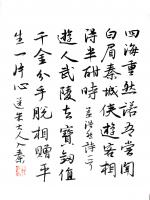 四海重然諾吾嘗聞
白眉秦城俠遊客相
得半酣時 孟浩然詩二首
遊人武陵去寶劍值
千金分手脱相贈平
生一片心 送朱大入秦